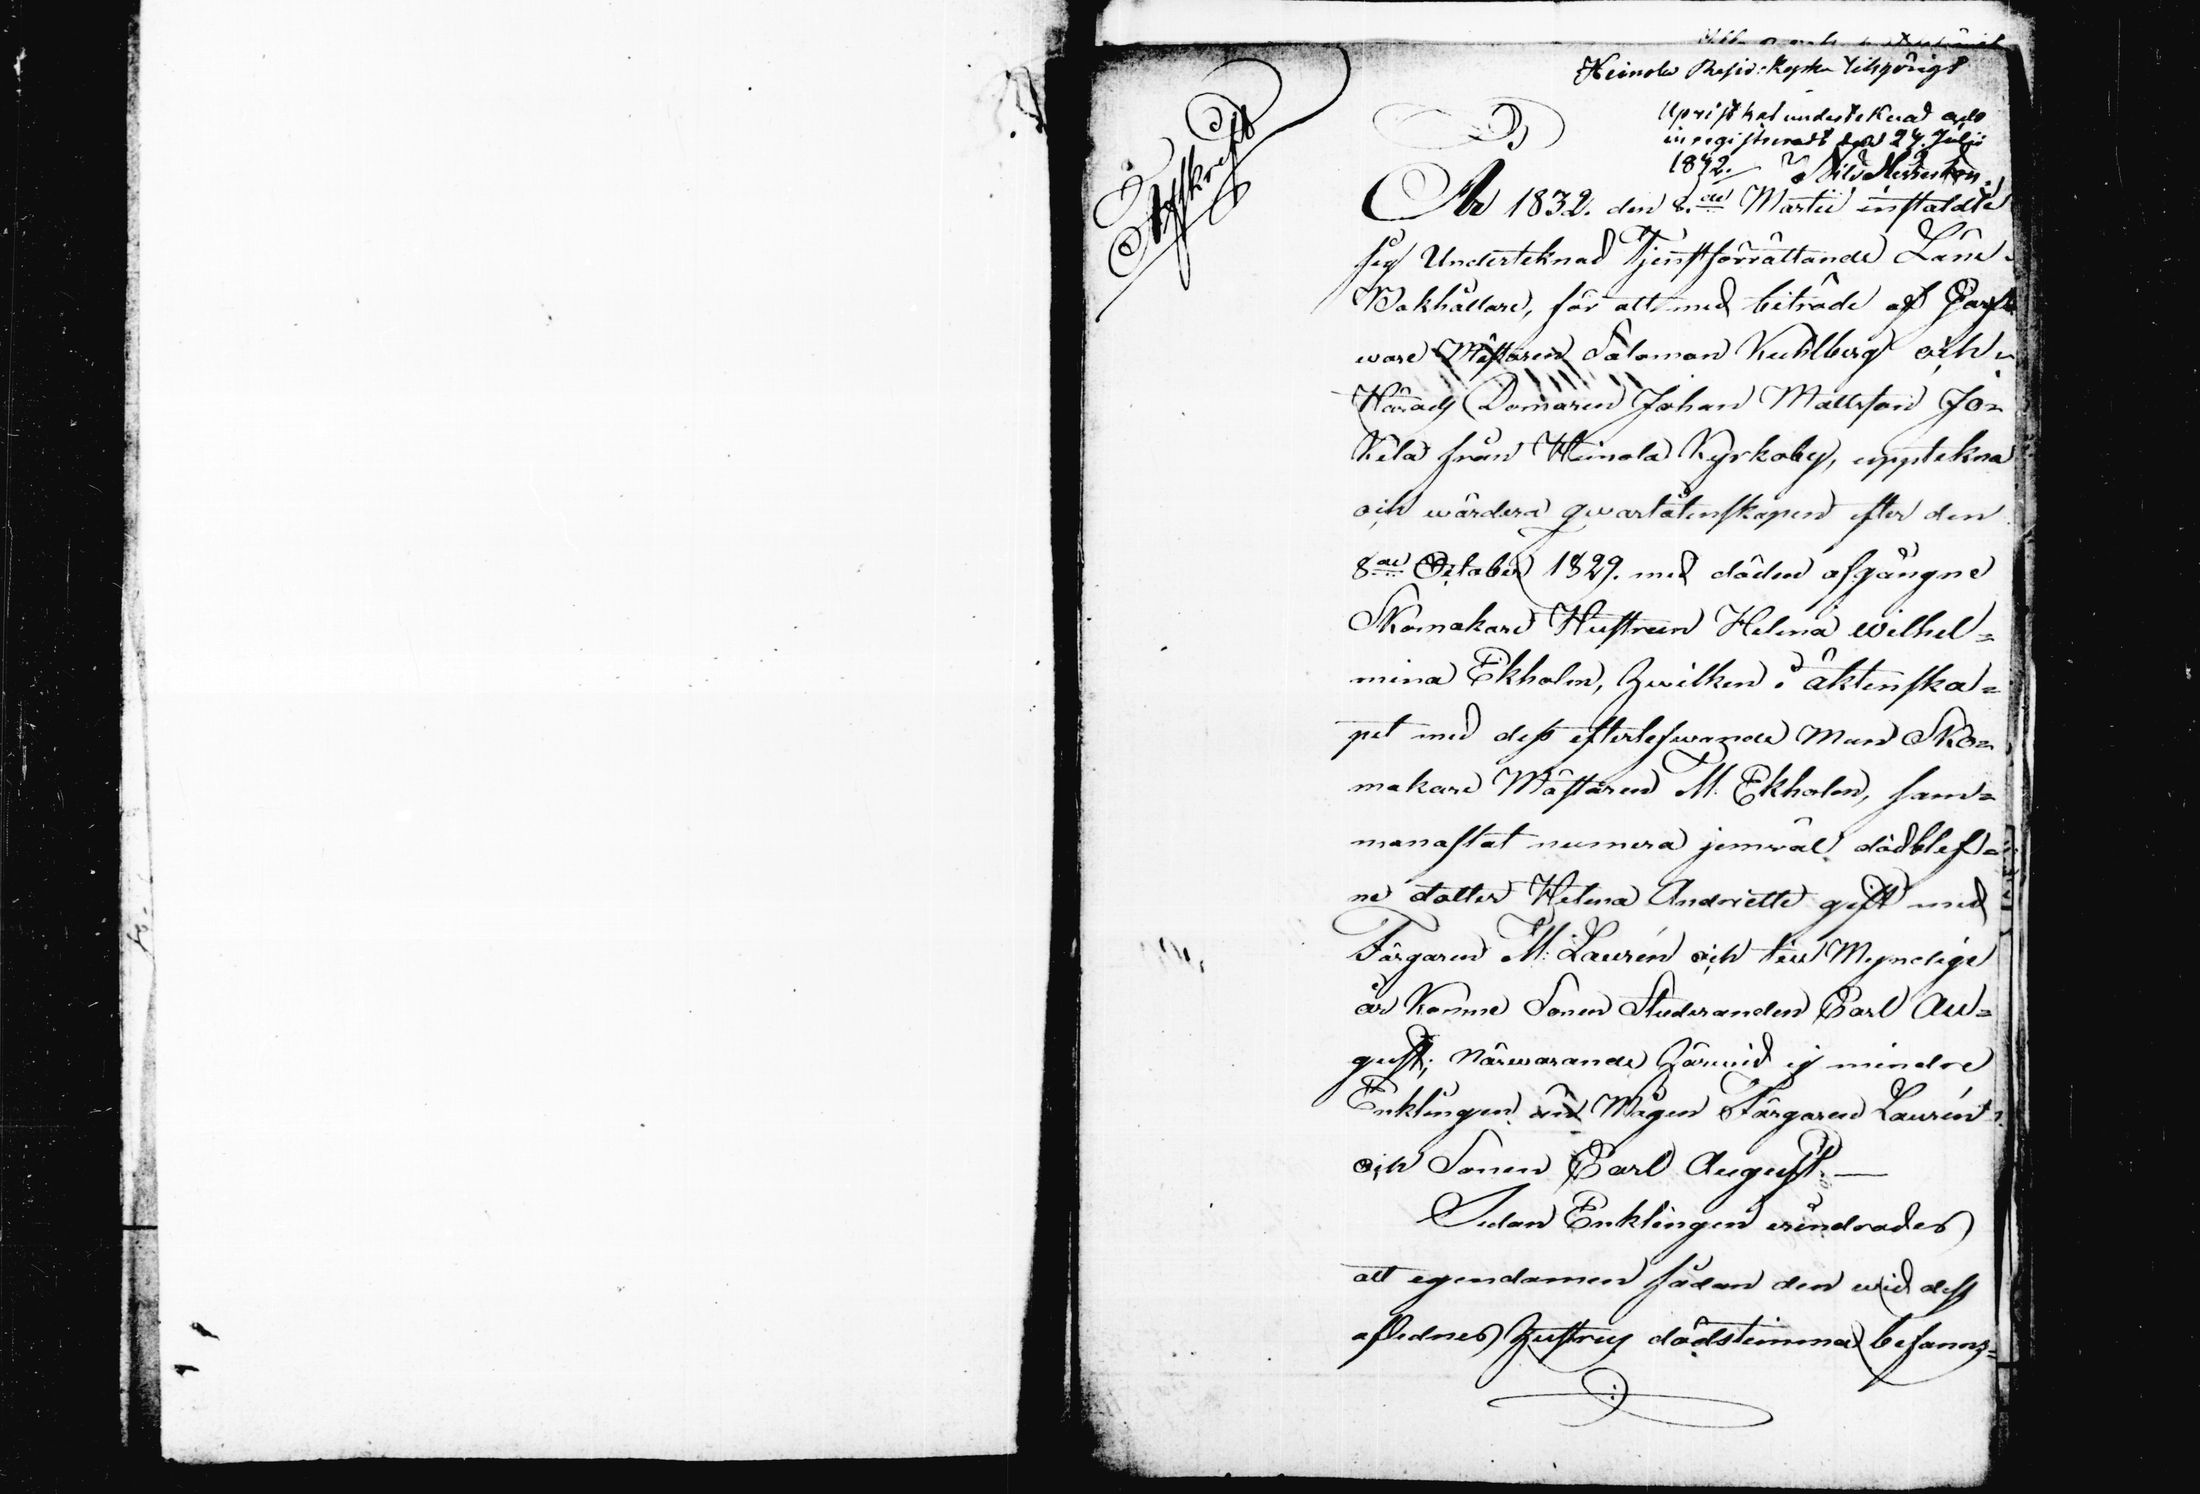 Heinola Tillhörigt
Afskrift
Uprist hat underteknad och
inregistrerat den 24. Julii
1842.
År 1832. den 8.de Martii instäldte
sig Underteknad Tjenstförrättande Läns-
Bokhållare, för att med biträde af Garf-
ware Mästaren Salomon Kuhlberg och
Härads Domaren Johan Mattsson Jo-
kela från Heinola Kyrkoby, upptekna
och wärdera qwarlåtenskapen efter den
8de October 1829. med döden afgångne
Skomakare Hustrun Helena Wilhel=
mina Ekholm, hwilken i äktenska=
pet med dess efterlefwande Man Sko=
makare Mästaren M. Ekholm, sam=
manaflat numera jemwäl dödblef=
ne dotter Helena Andriette gift med
Färgaren M: Laurén och till Myndige
år komne Sonen Studeranden Carl Au=
gust; närwarande härwid ej mindre
Enklingen än Mågen Färgaren Laurén
och Sonen Carl August.—
Sedan Enklingen erindrades
att egendomen sådan den wid dess
aflednes hustrus dödstimma befanns